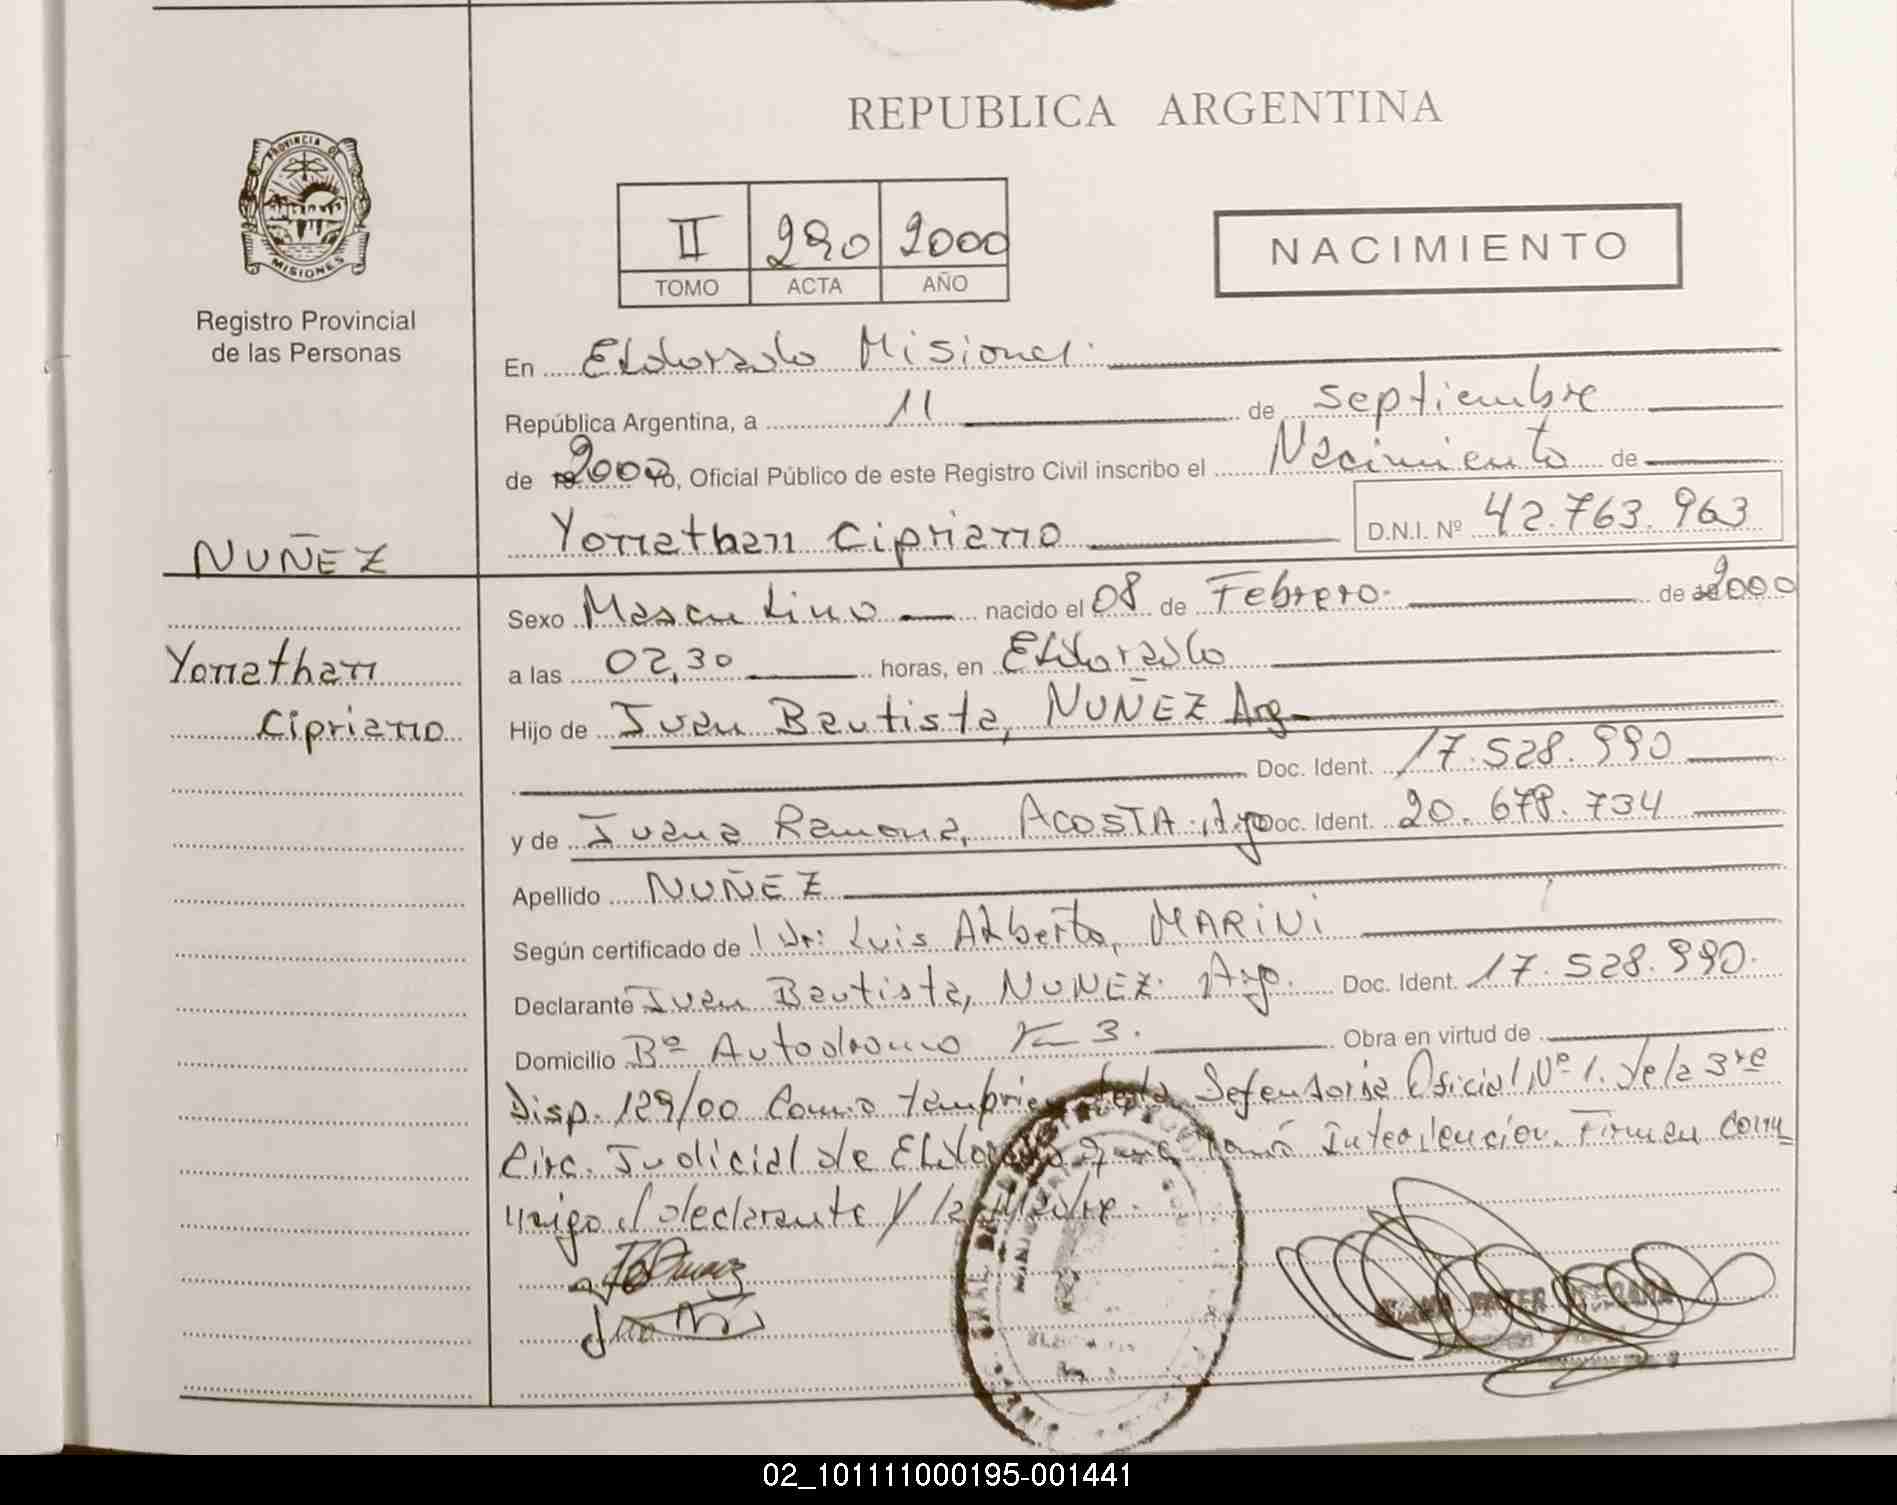 REPUBLICA ARGENTINA
PROVINCIA DE
MISIONES
Registro Provincial
de las Personas
II 290 2000
TOMO ACTA AÑO
NACIMIENTO
En Eldorado Misiones.
República Argentina, a 11 de septiembre
de 2000, Oficial Público de este Registro Civil inscribo el Nacimiento de
Yonathan Cipriano D.N.I. Nº 42.763.963
NUÑEZ
Sexo Masculino nacido el 08 de Febrero. de 2000
Yonathan
a las 02,30 horas, en Eldorado
Cipriano
Hijo de Juan Bautista, NUÑEZ Arg
Doc. Ident. 17.528.990
y de Juana Ramona, ACOSTA. Arg Doc. Ident. 20.678.734
Apellido NUÑEZ
Según certificado de Dr: Luis Alberto, MARiNi
Declarante Juan Bautista, NUÑEZ. Arg. Doc. Ident. 17.528.990.
Domicilio Bº Autodromo Km 3. Obra en virtud de
Disp. 129/00 Como tambien de la Defensoria Oficial Nº 1. de la 3ra
Circ. Judicial de Eldorado que tomó Intervencion. Firman con
migo el declarante y la Madre.
02_101111000195-001441